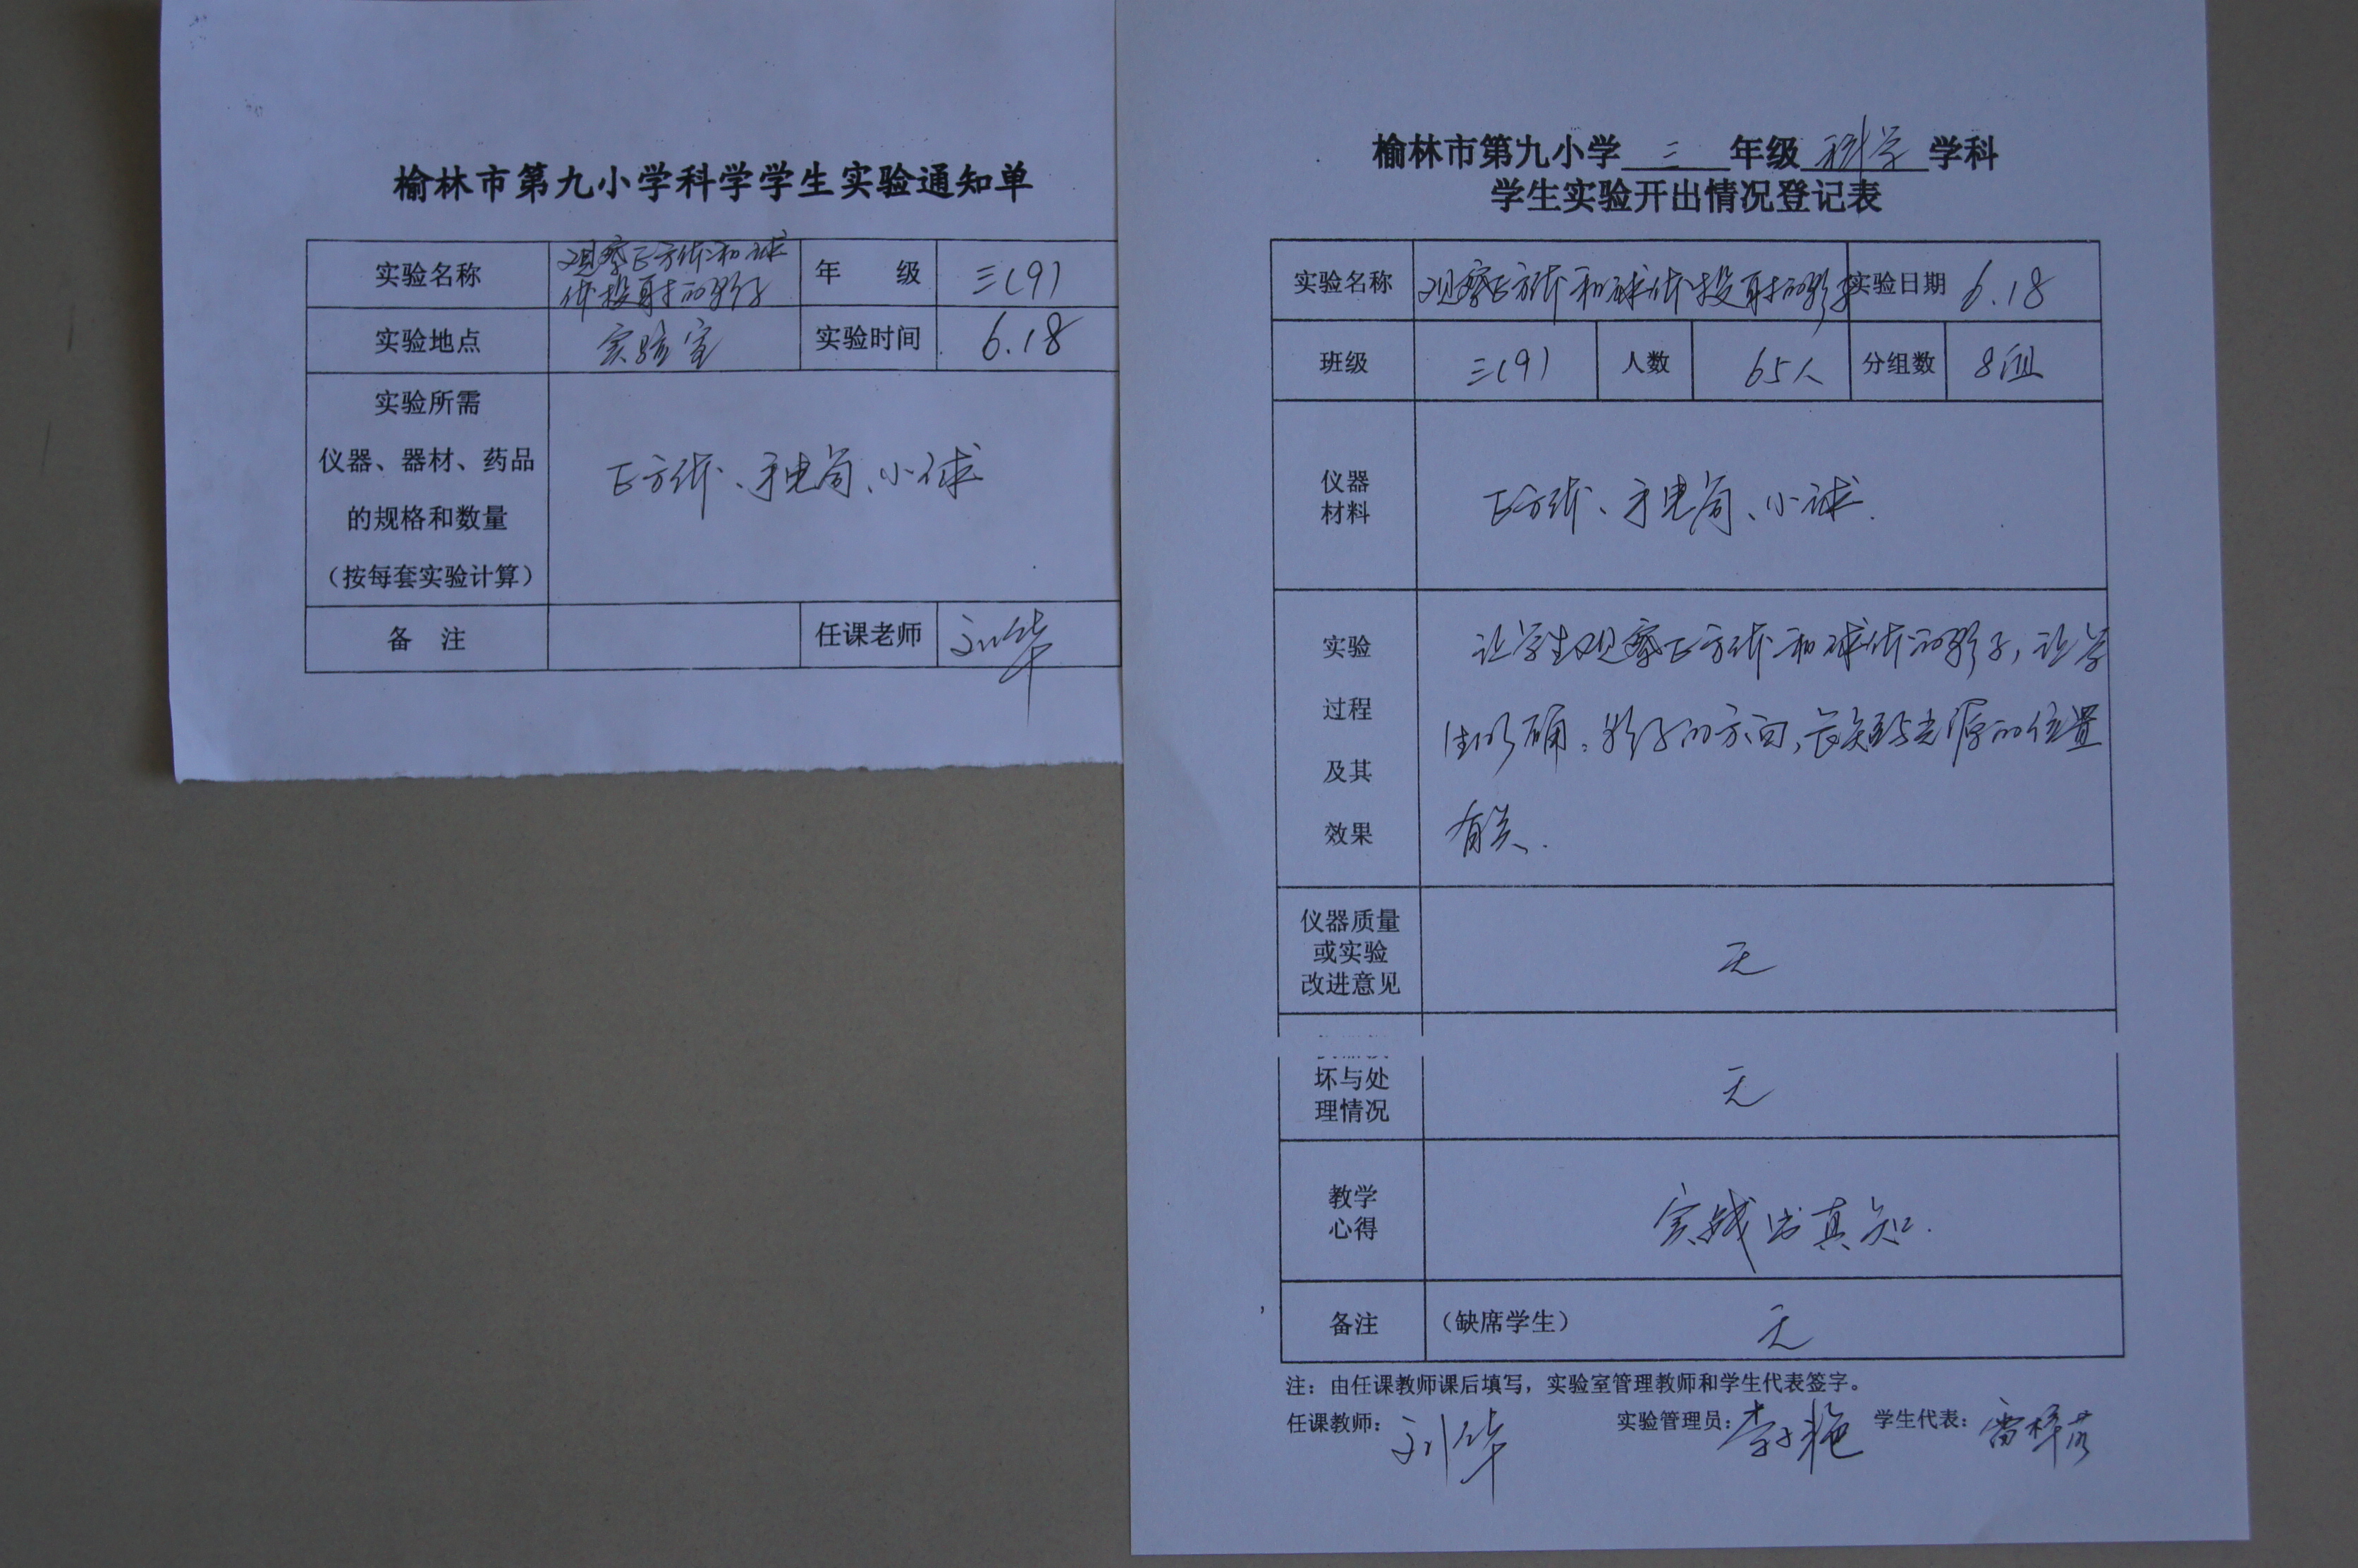 榆林市第九小学科学学生实验通知单
实验名称 观察正方体和球体投射的影子 年 级 三(9)
实验地点 实验室 实验时间 6.18
实验所需
仪器、器材、药品
的规格和数量
（按每套实验计算）
正方体、手电筒、小球
备 注 任课老师 刘华
榆林市第九小学 三 年级 科学 学科
学生实验开出情况登记表
实验名称 观察正方体和球体投射的影子 实验日期 6.18
班级 三(9) 人数 65人 分组数 8组
仪器
材料
正方体、手电筒、小球.
实验
过程
及其
效果
让学生观察正方体和球体的影子，让学
生明确：影子的方向、长短与光源的位置
有关.
仪器质量
或实验
改进意见
无
坏与处
理情况
无
教学
心得
实践出真知.
备注 （缺席学生） 无
注：由任课教师课后填写，实验室管理教师和学生代表签字。
任课教师：刘华 实验管理员：李艳 学生代表：雷